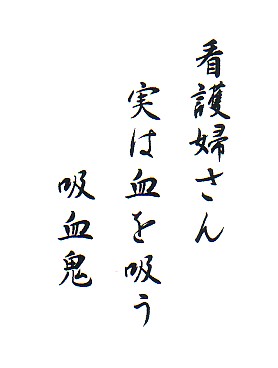 看護婦さん
実は血を吸う
吸血鬼